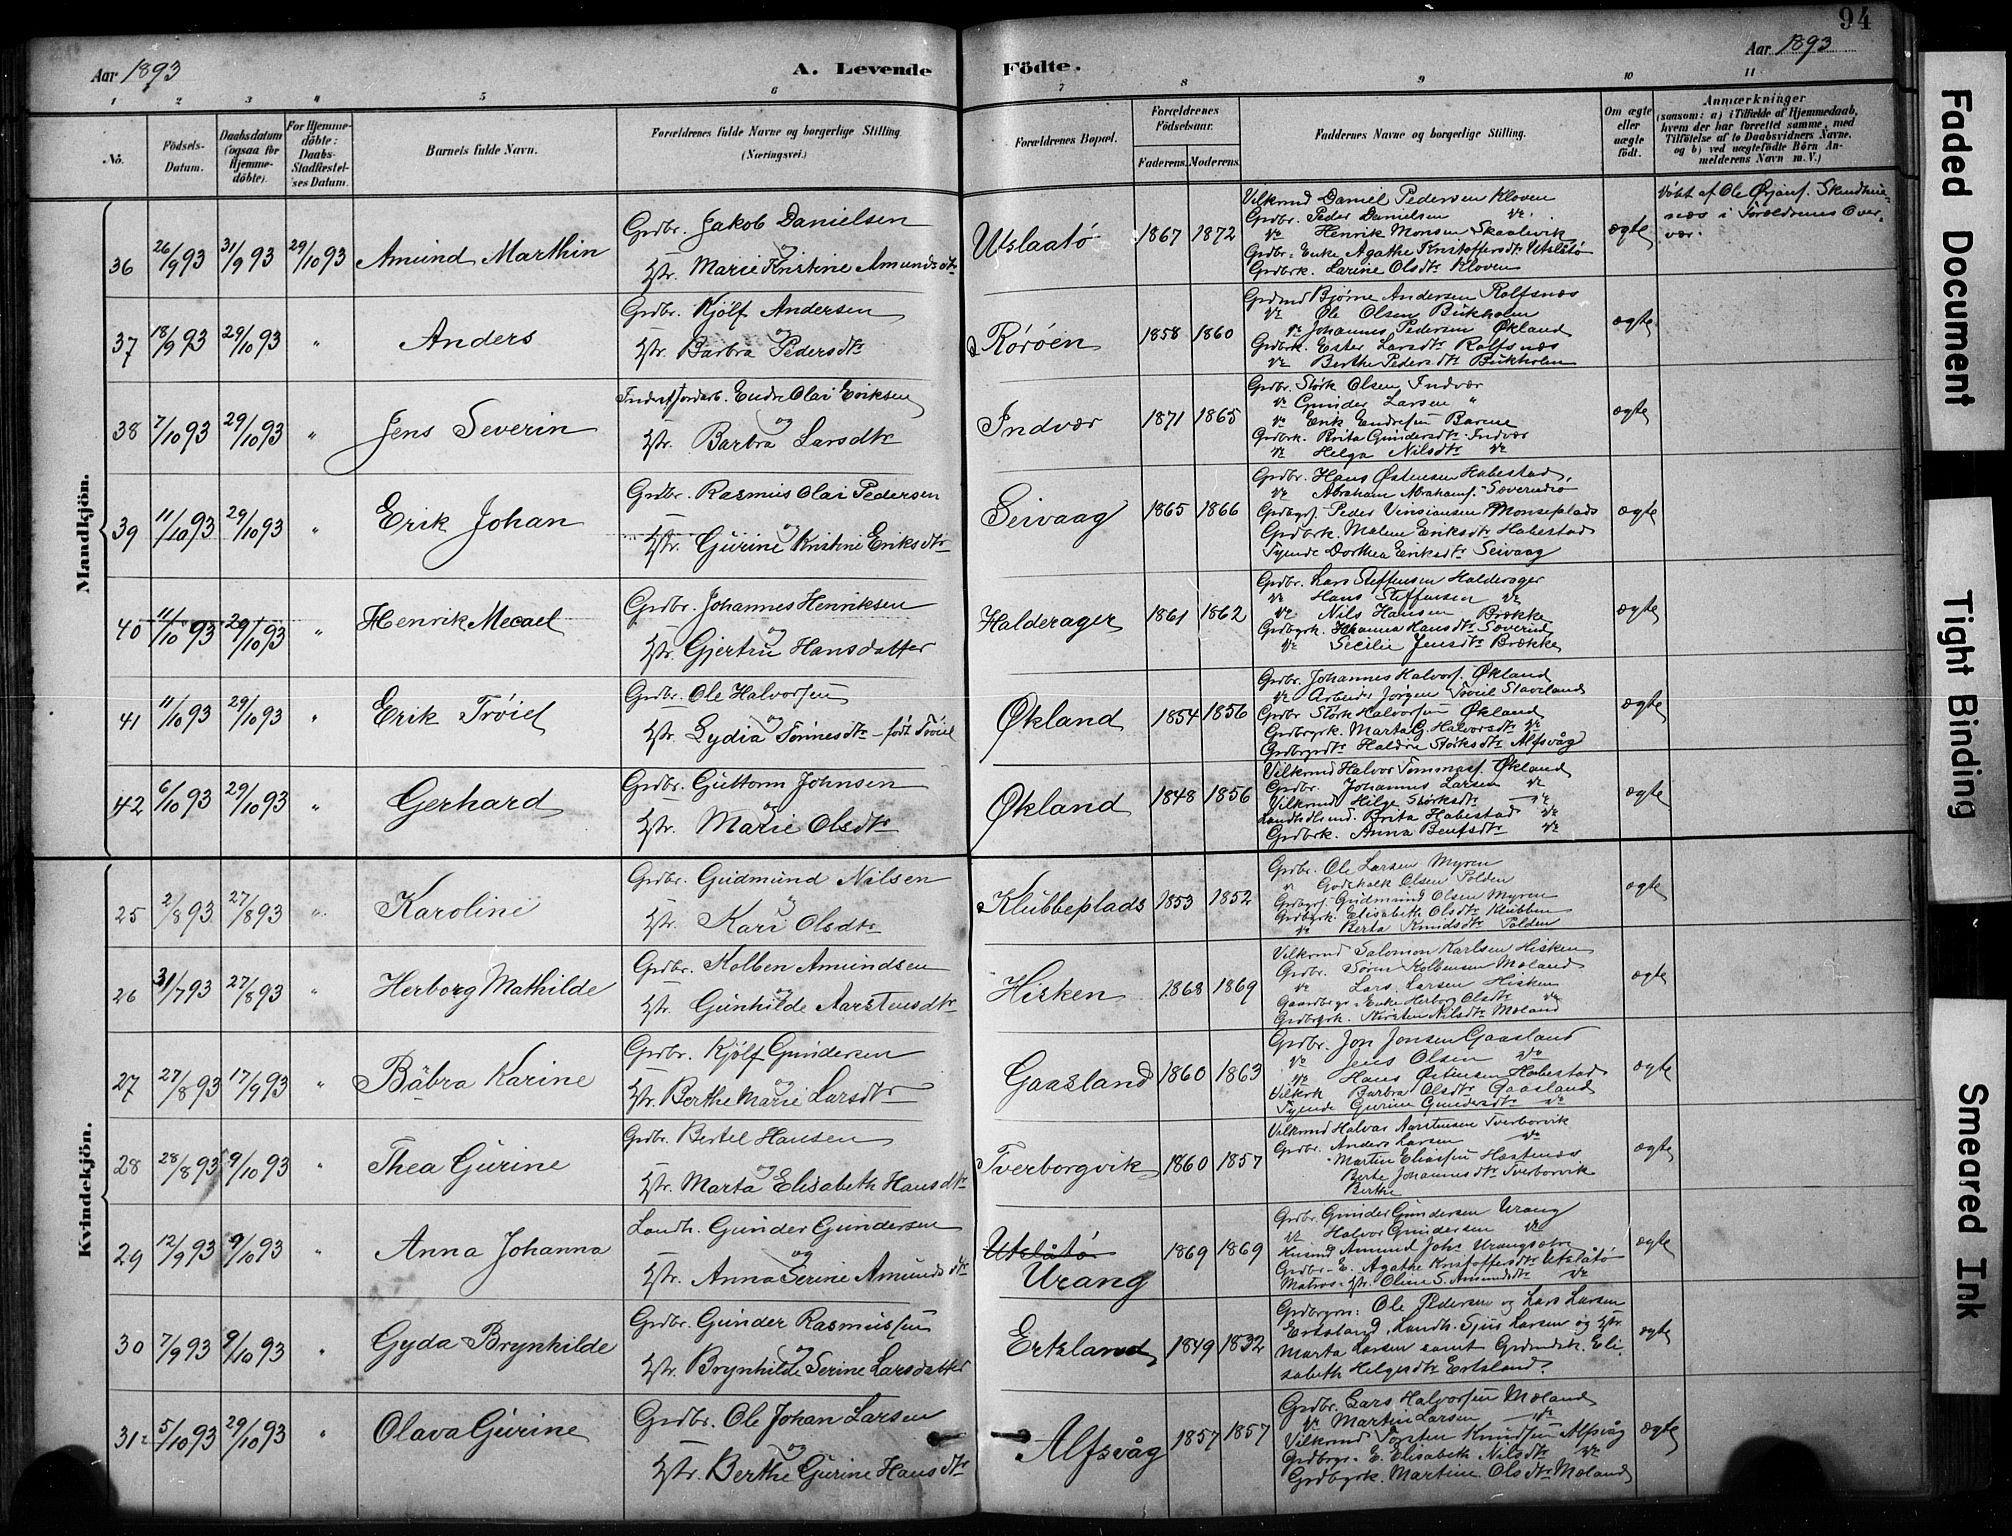 94
Aar 1893
A. Levende
Födte.
Aar 1893
1 2 3 4 5 6 7 8 9 10 11
No.
Födsels-
Datum.
Daabsdatum
(ogsaa for
Hjemme-
döbte).
For Hjemme-
döbte:
Daabs-
Stadfæstel-
ses Datum.
Barnets fulde Navn.
Forældrenes fulde Navne og borgerlige Stilling.
(Næringsvei.)
Forældrenes Bopæl.
Forældrenes
Födselsaar.
Faderens. Moderens.
Faddernes Navne og borgerlige Stilling.
Om ægte
eller
uægte
födt.
Anmærkninger
(saasom: a) i Tilfælde af Hjemmedaab,
hvem der har forrettet samme, med
Tilföielse af to Daabsvidners Navne,
og b) ved uægtefödte Börn An-
melderens Navn m. V.)
Mandkjön.
36 26/9 93 31/9 93 29/10 93 Amund Marthin
Grdbr. Jakob Danielsen
og
Hstr. Marie Kristine Amundsdtr
Utslaatö 1867 1872
Vilkrmd Daniel Pedersen Kloven
Grdbr. Peder Danielsen do
do Henrik Monsen Skaalevik
Grdbr. Enke Agathe Kristoffersdtr Utslåtö
Grdbrk. Larine Olsdtr Kloven
ægte
37 18/9 93 29/10 93 " Anders
Grdbr. Kjölf Andersen
og
Hstr. Barbra Pedersdtr
Röröen 1858 1860
Grdmd Bjørne Andersen Rolfsnæs
do Ole Olsen Bukholm
do Johannes Pedersen Økland
Grdbrk. Ester Larsdtr Rolfsnæs
do Berthe Pedersdtr Bukholm
ægte
38 7/10 93 29/10 93 " Jens Severin
Endre Olai Eriksen
og
Hstr. Barbra Larsdtr
Indvær 1871 1865
Grdbr. Störk Olsen Indvær
do Gunder Larsen "
do Erik Endresen
Grdbrk. Brita Gundersdtr Indvær
do Helga Nilsdtr do
ægte
39 11/10 93 29/10 93 " Erik Johan
Grdbr. Rasmus Olai Pedersen
og
Hstr. Gurine Kristine Eriksdtr
Seivaag 1865 1866
Grdbr. Hans Östensen Habestad
do Abraham Abrahams.
Peder Vinsiansen Monseplads
Grdbrk. Malene Eriksdtr Habestad
Tyende Dorthea Eriksdtr Seivaag
ægte
40 11/10 93 29/10 93 " Henrik Mecael
Grdbr. Johannes Henriksen
og
Hstr. Gjertru Hansdatter
Halderager 1861 1862
Grdbr. Lars Steffensen Halderager
do Hans Steffensen do
do Nils Hansen Brække
Grdbrk. Johanna Hansdtr
do Secilie Jensdtr Brække
ægte
41 11/10 93 29/10 93 " Erik Tröiel
Grdbr. Ole Halvorsen
og
Hstr. Lydia Tönnesdtr - født Tröiel
Økland 1854 1856
Grdbr. Johannes Halvors. Økland
Jörgen Tröiel Stavland
Grdbr Störk Halvorsen Økland
Grdbrgrk. Marta G. Halvorsdtr do
Haldis Störksdtr Alfsvåg
ægte
42 6/10 93 29/10 93 " Gerhard
Grdbr. Guttorm Johnsen
og
Hstr. Marie Olsdtr
Økland 1848 1856
Vilkrmd Halvor Tommas. Økland
Grdbr. Johannes Larsen do
Helge Störksdtr do
Brita Habestad do
Grdbrk. Anna Bentsdtr do
ægte
Kvindekjön.
25 2/8 93 27/8 93 " Karoline
Grdbr. Gudmund Nilsen
og
Hstr. Kari Olsdtr
Klubbeplads 1853 1852
Grdbr. Ole Larsen Myren
" Godskalk Olsen Polden
Gudmund Olsen Myren
Grdbrk. Elisabeth Olsdtr Klubben
do Berta Knudsdtr Polden
ægte
26 31/7 93 27/8 93 " Herborg Mathilde
Grdbr. Kolben Amundsen
og
Hstr. Gunhilde Aarstensdtr
Hisken 1868 1869
Vilkrmd Salomon Karlsen Hisken
Grdbr. Sören Kolbensen Moland
do Lars Larsen Hisken
Enke Herborg Olsdtr do
Grdbrk. Kirsten Nilsdtr Moland
ægte
27 27/8 93 17/9 93 " Båbra Karine
Grdbr. Kjölf Gundersen
og
Hstr. Berthe Marie Larsdtr
Gaasland 1860 1863
Grdbr. Jon Jonsen Gaasland
do Jens Olsen do
do Hans Östensen Habestad
Vilkrk Barbra Olsdtr Gaasland
Tyende Gurine Gundersdtr do
ægte
28 28/8 93 9/10 93 " Thea Gurine
Grdbr. Bertel Hansen
og
Hstr. Marta Elisabeth Hansdtr
Tverborgvik 1860 1857
Vilkrmd Halvar Aarstensen Tverborvik
Grdbr. Anders Larsen do
Martin Eliassen
Berte Johannesdtr Tverborvik
Berthe
ægte
29 12/9 93 9/10 93 " Anna Johanna
Landh. Gunder Gundersen
og
Hstr. Anna Serine Amundsdtr
Utslåtö
Urang
1869 1869
Grdbr. Gunder Gundersen Urang
do Halvor Gundersen do
Amund Johs. Urangsvåg
Grdbr. E. Agathe Kristoffersdtr Utslåtö
Matros-Hstr. Oline S. Amundsdtr do
ægte
30 7/9 93 9/10 93 " Gyda Brynhilde
Grdbr. Gunder Rasmussen
og
Hstr. Brynhilde Serine Larsdatter
Ertsland 1849 1832
Grdbrgr: Ole Pedersen og Lars Larsen
Ertsland, Landh. Sjur Larsen og Hstr.
Marta Larsen samt Grdmdsk. Eli-
sabeth Helgesdtr Ertsland.
ægte
31 5/10 93 29/10 93 " Olava Gurine
Grdbr. Ole Johan Larsen
og
Hstr. Berthe Gurine Hansdtr
Alfsvåg 1857 1857
Grdbr. Lars Halvorsen Moland
do Martin Larsen do
Vilkrmd Torsten Knudsen Alfsvåg
E. Elisabeth Nilsdtr do
Grdbgrk. Martine Olsdtr Moland
ægte
Faded Document
Tight Binding
Smeared Ink